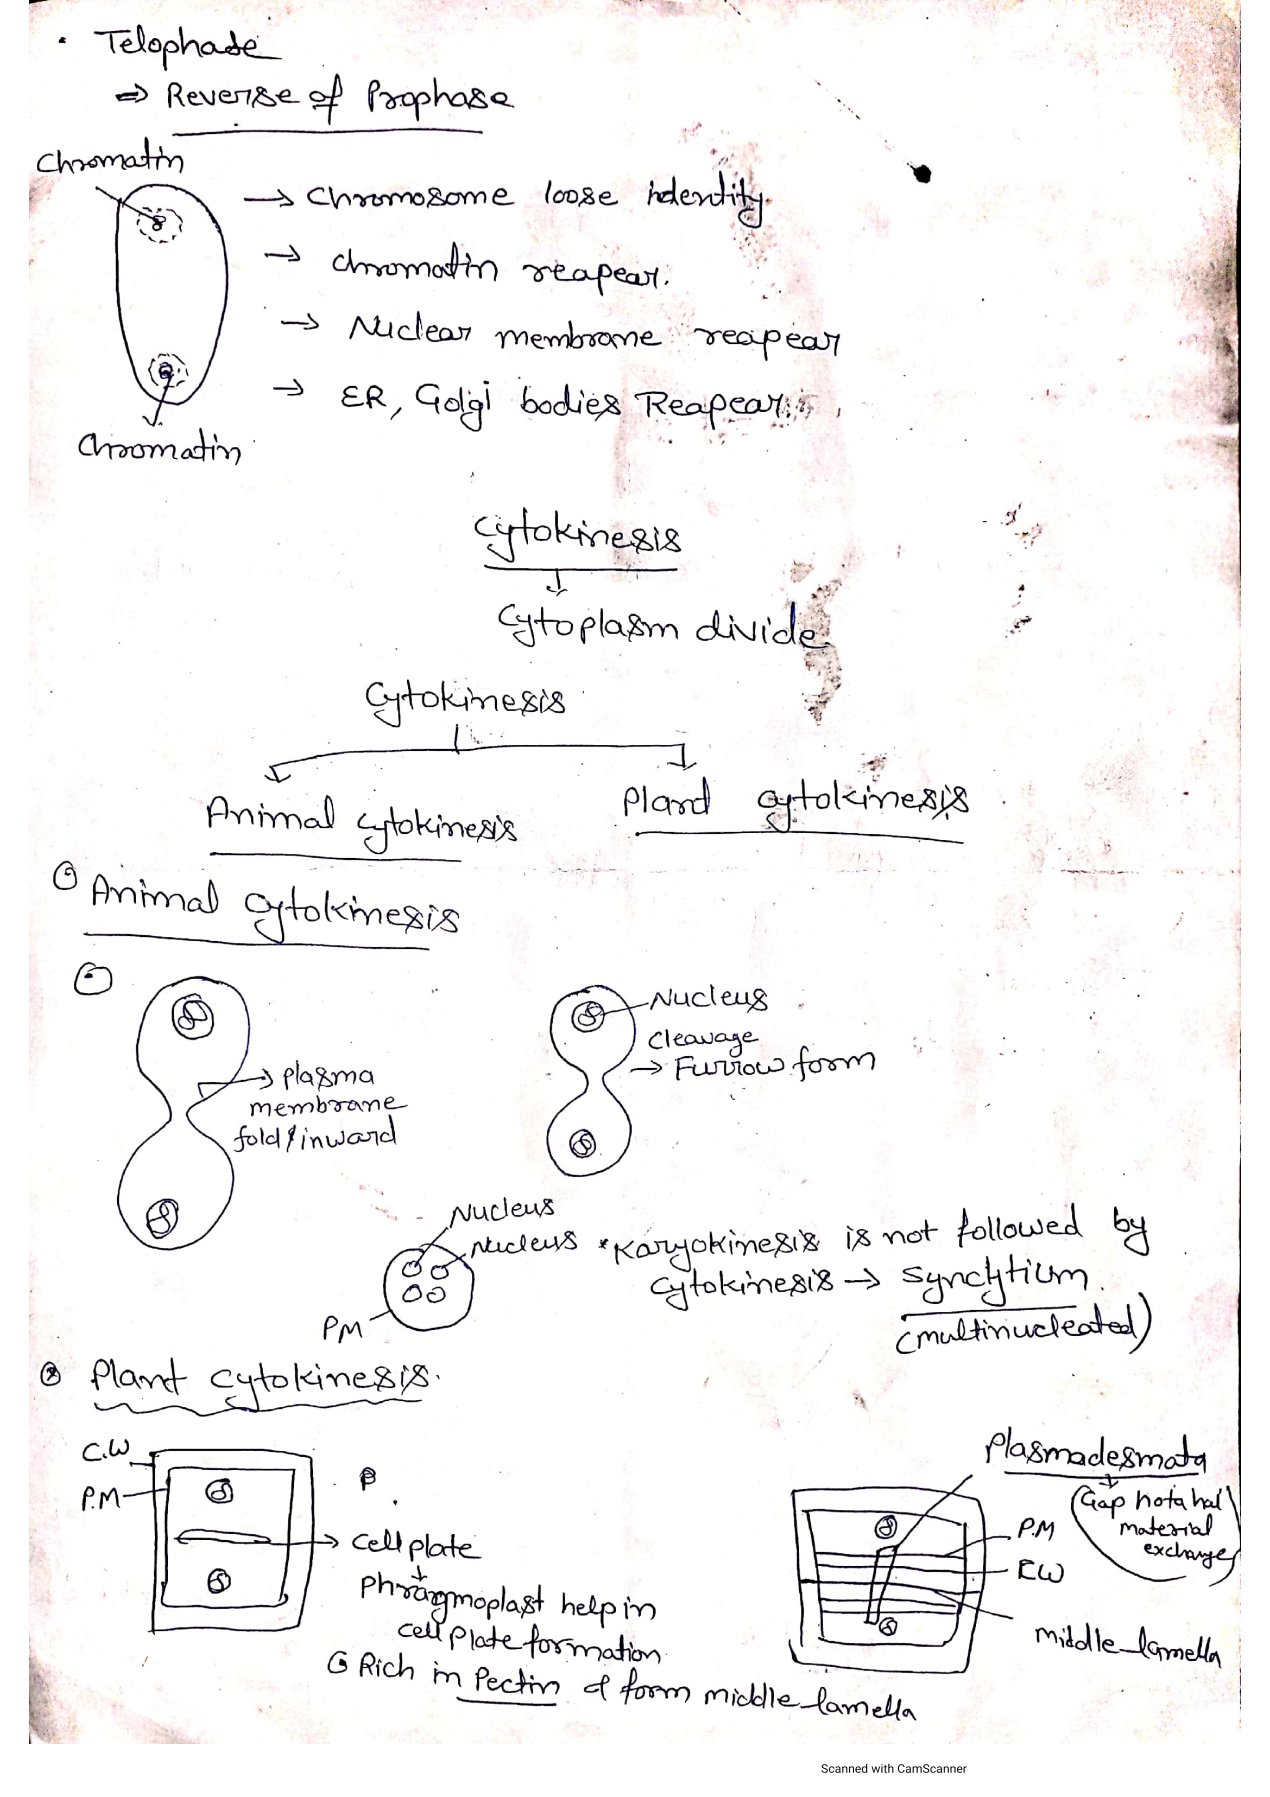 • Telophase
⇒ Reverse of Prophase
Chromatin
→ Chromosome loose indentity.
→ chromatin reapear.
→ Nuclear membrane reapear
→ ER, Golgi bodies Reapear.
Chromatin
Cytokinesis
Cytoplasm divide
Cytokinesis
Animal cytokinesis
Plant cytokinesis
① Animal cytokinesis
Nucleus
Cleavage
→ Furrow form
→ plasma
membrane
fold inward
Nucleus
Nucleus
PM
* Karyokinesis is not followed by
cytokinesis → Synctytium.
(multinucleated)
② Plant cytokinesis.
C.W
P.M
Cell plate
Phragmoplast help in
cell plate formation
Rich in Pectin & form middle lamella
Plasmadesmata
Gap hota hai
material
exchange
P.M
C.W
middle lamella
Scanned with CamScanner